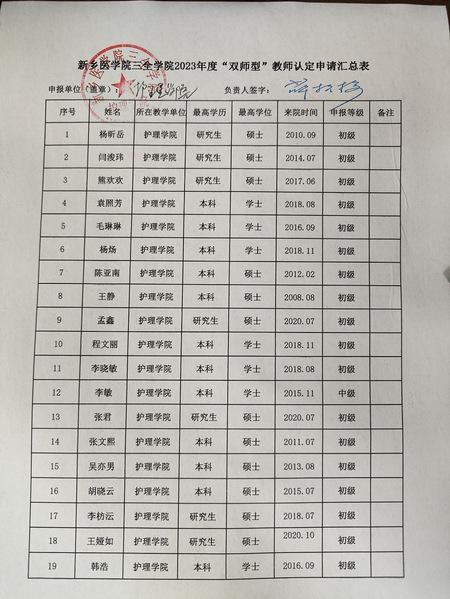 新乡医学院三全学院2023年度“双师型”教师认定申请汇总表
申报单位（盖章）：护理学院 负责人签字：
序号 姓名 所在教学单位 最高学历 最高学位 来院时间 申报等级 备注
1 杨昕岳 护理学院 研究生 硕士 2010.09 初级
2 闫浚玮 护理学院 研究生 硕士 2014.07 初级
3 熊欢欢 护理学院 研究生 硕士 2017.06 初级
4 袁照芳 护理学院 本科 学士 2018.08 初级
5 毛琳琳 护理学院 本科 学士 2016.09 初级
6 杨炀 护理学院 本科 学士 2018.11 初级
7 陈亚南 护理学院 本科 硕士 2012.02 初级
8 王静 护理学院 本科 硕士 2008.08 初级
9 孟鑫 护理学院 研究生 硕士 2020.07 初级
10 程文丽 护理学院 本科 学士 2018.11 初级
11 李晓敏 护理学院 本科 学士 2018.08 初级
12 李敏 护理学院 本科 学士 2015.11 中级
13 张君 护理学院 研究生 硕士 2020.07 初级
14 张文熙 护理学院 本科 硕士 2011.07 初级
15 吴亦男 护理学院 本科 硕士 2013.08 初级
16 胡晓云 护理学院 本科 硕士 2015.07 初级
17 李枋沄 护理学院 研究生 硕士 2018.07 初级
18 王娅如 护理学院 研究生 硕士 2020.10 初级
19 韩浩 护理学院 本科 学士 2016.09 初级